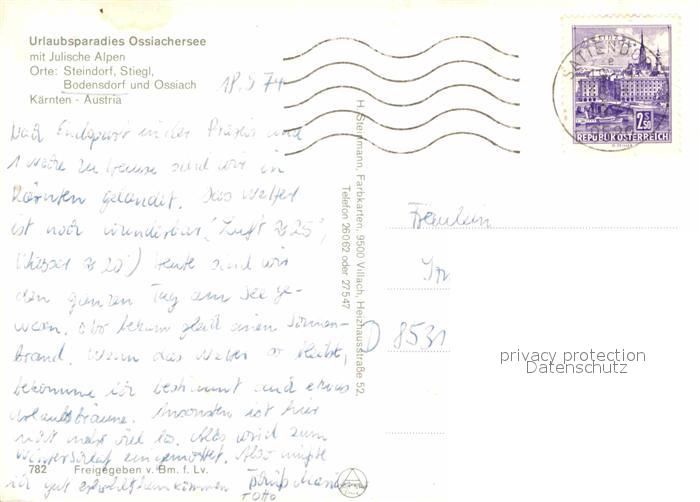 Urlaubsparadies Ossiachersee
mit Julische Alpen
Orte: Steindorf, Stiegl,
Bodensdorf und Ossiach
Kärnten - Austria
18. 74
Nach Endspurt in der Praxis und
1 Woche zu Hause sind wir in
Kärnten gelandet. Das Wetter
ist noch wunderbar! (Luft 25°,
Wasser 20°) Heute sind wir
den ganzen Tag am See ge-
wesen. bekam gleich einen Sonnen-
brand. Wenn das Wetter so bleibt,
bekomme ich bestimmt auch etwas
Urlaubsbräune. Ansonsten ist hier
nicht mehr viel los. Alles wird zum
Winterschlaf eingemottet. Also müsste
ich gut erholt heimkommen
782 Freigegeben v. Bm. f. Lv.
H. Steinmann, Farbkarten, 9500 Villach, Heizhausstraße 52,
Telefon 26062 oder 27547
SATTENDORF
2.50
REPUBLIK ÖSTERREICH
Fräulein
D 8531
privacy protection
Datenschutz